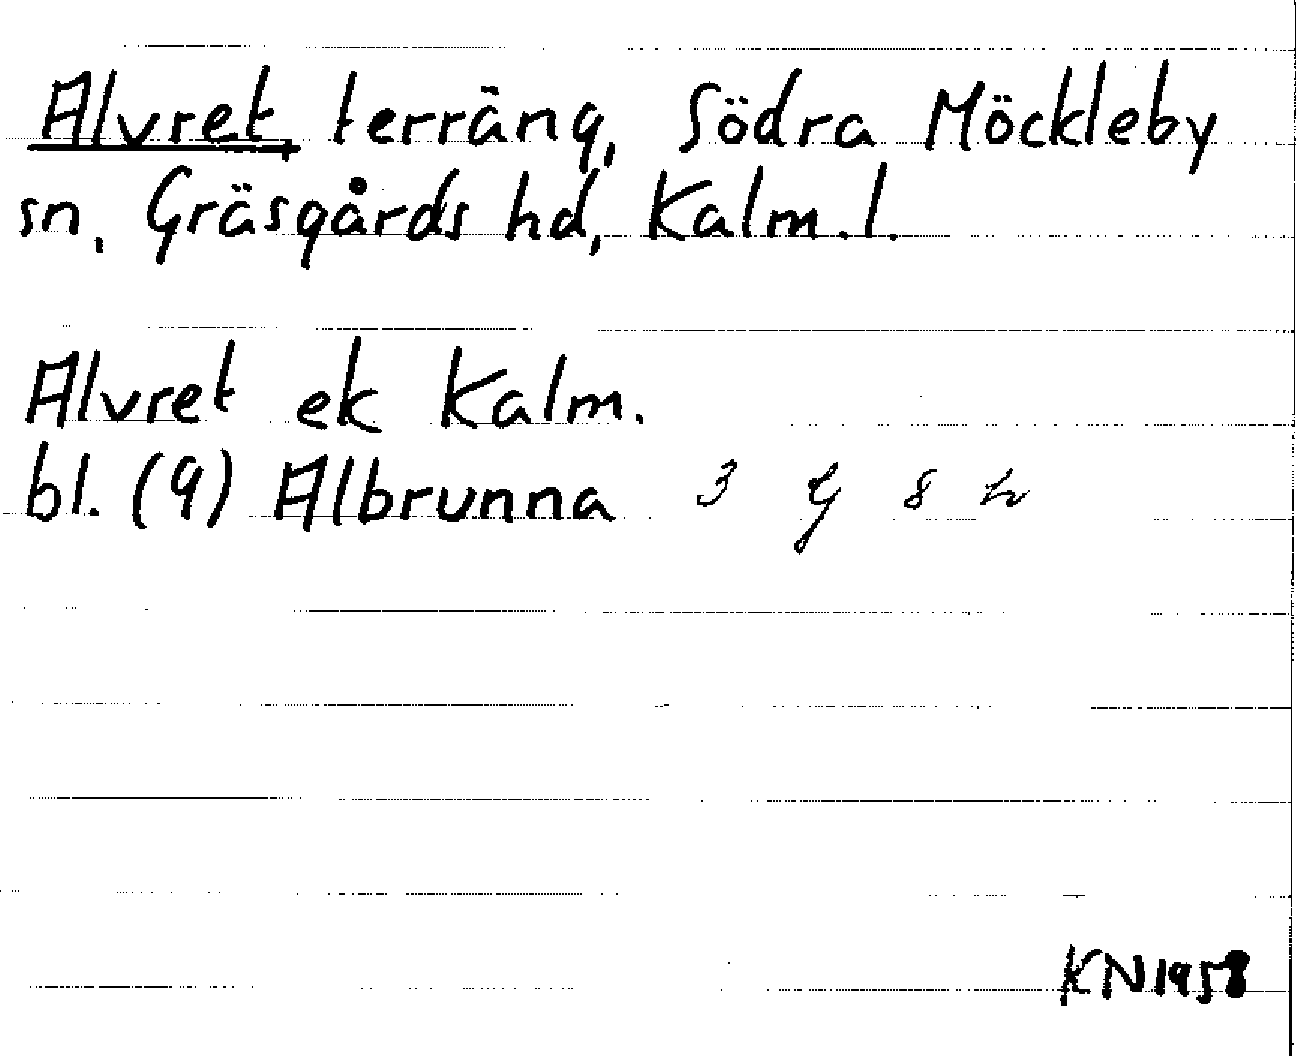 Alvret, terräng, Södra Möckleby
sn, Gräsgårds hd, Kalm.l.
Alvret ek Kalm.
bl. (9) Albrunna 3 G 8 h
KN1958